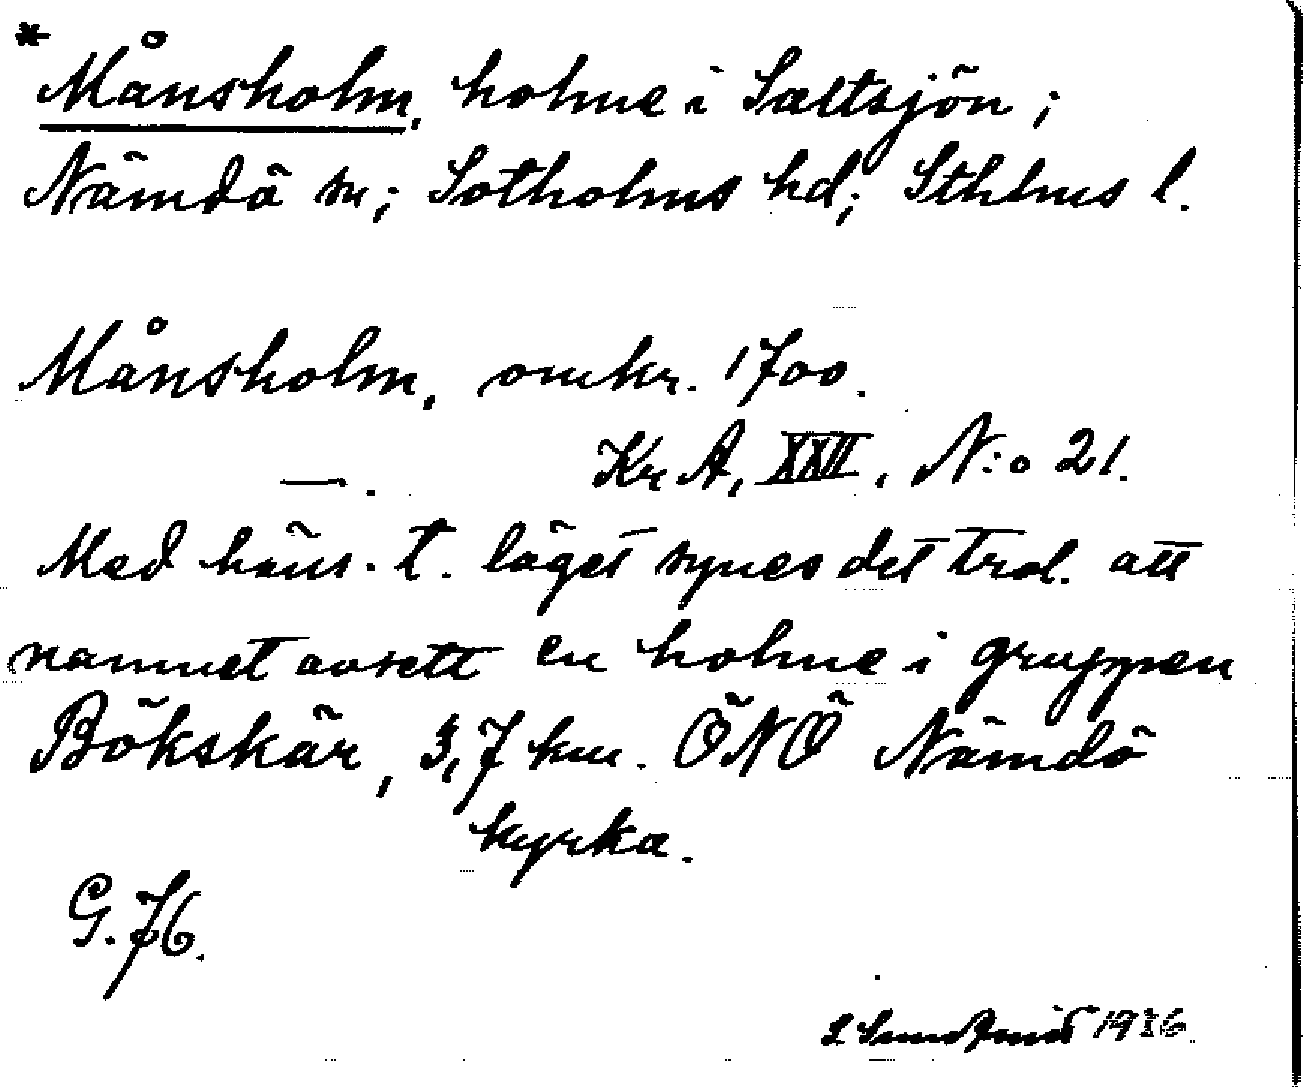 * Månsholm, holme i Saltsjön;
Nämdö sn; Sotholms hd; Sthlms l.
Månsholm, omkr. 1700.
Kr A, XXII, N:o 21.
—.
Med häns. t. läget synes det trol. att
namnet avsett en holme i gruppen
Bökskär, 3,7 km. ÖNÖ Nämdö
kyrka.
G. 76.
1936